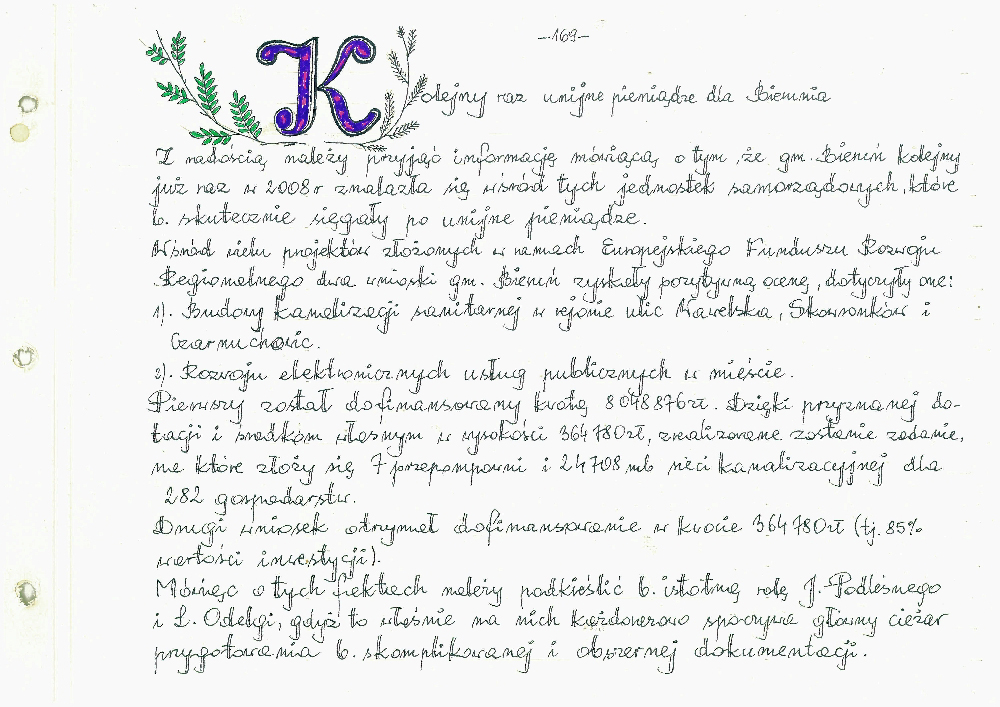 -169-
Kolejny raz unijne pieniądze dla Bierunia
Z radością należy przyjąć informację mówiącą o tym, że gm. Bieruń kolejny
już raz w 2008r znalazła się wśród tych jednostek samorządowych, które
b. skutecznie sięgały po unijne pieniądze.
Wśród wielu projektów złożonych w ramach Europejskiego Funduszu Rozwoju
Regionalnego dwa wnioski gm. Bieruń zyskały pozytywną ocenę, dotyczyły one:
1). Budowy kanalizacji sanitarnej w rejonie ulic Wawelska, Skowronków i
Czarnuchowic.
2). Rozwoju elektronicznych usług publicznych w mieście.
Pierwszy został dofinansowany kwotą 8 048 876 zł. Dzięki przyznanej do-
tacji i środkom własnym w wysokości 364 780 zł, zrealizowane zostanie zadanie,
na które złoży się 7 przepompowni i 24 708 mb sieci kanalizacyjnej dla
282 gospodarstw.
Drugi wniosek otrzymał dofinansowanie w kwocie 364 780 zł (tj. 85%
wartości inwestycji).
Mówiąc o tych faktach należy podkreślić b. istotną rolę J. Podleśnego
i Ł. Odelgi, gdyż to właśnie na nich każdorazowo spoczywa główny ciężar
przygotowania b. skomplikowanej i obszernej dokumentacji.